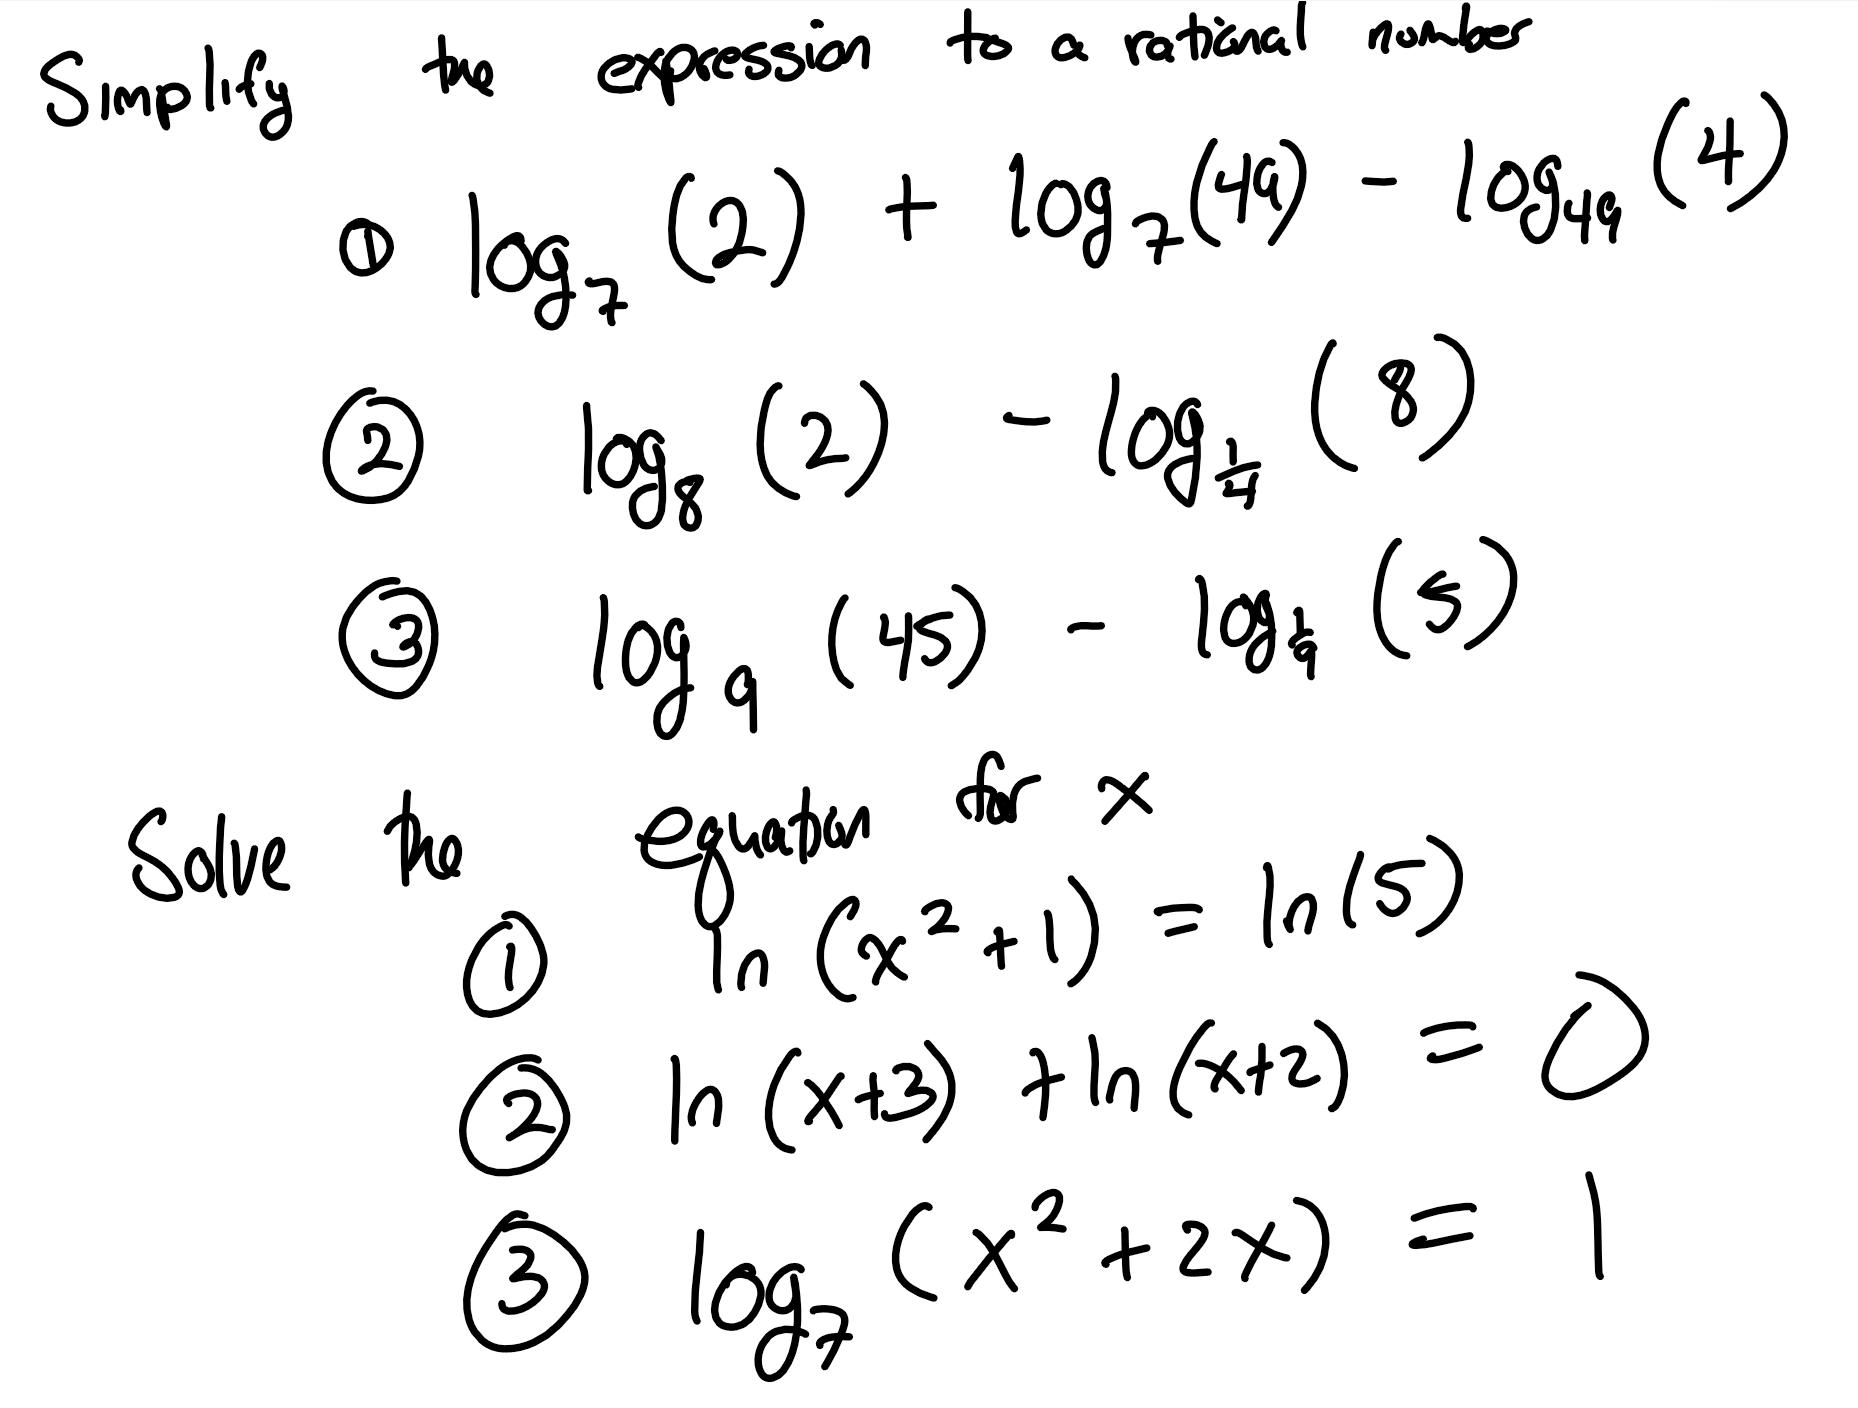 Simplify the expression to a rational number
① log₇ (2) + log₇ (49) - log₄₉ (4)
② log₈ (2) - log_{1/4} (8)
③ log₉ (45) - log_{1/9} (5)
Solve the equation for x
① ln (x² + 1) = ln (5)
② ln (x+3) + ln (x+2) = 0
③ log₇ (x² + 2x) = 1